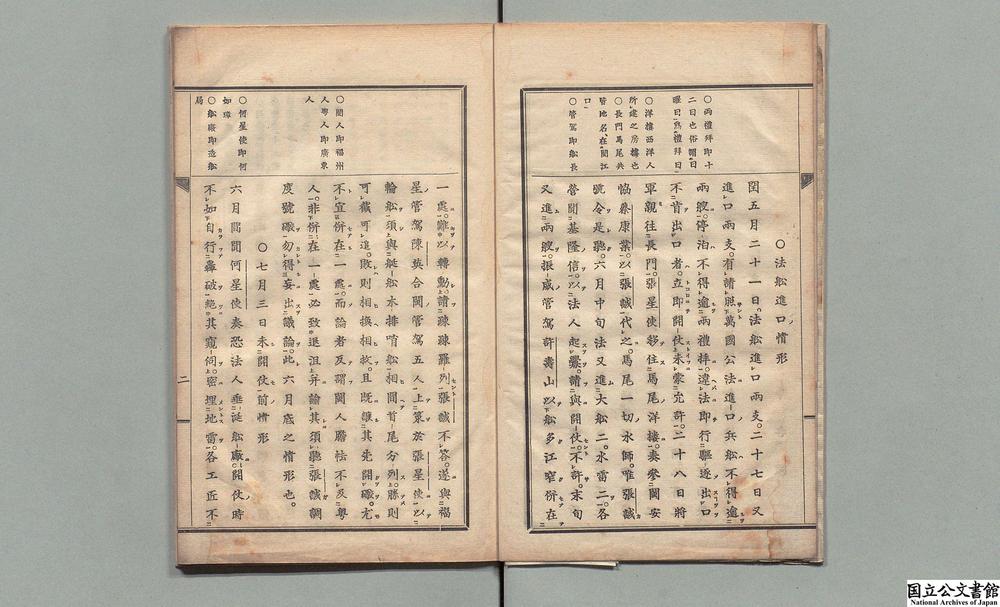 ○法船進口情形
閏五月二十一日、法船進口兩支。二十七日又
進口兩支。有請照萬國公法進口兵船不得逾
兩艘。停泊不得逾兩禮拜。違法即行驅逐出口
不肯出口者。立即開仗。未蒙允許。二十八日將
軍親往長門。張星使移住馬尾洋樓。奏參閩安
協蔡康業。以張誠代之。馬尾一切水師。唯張誠
號令是聽。六月中旬法又進大船二。水雷二。各
營聞基隆信。以法人起釁。請與開仗。不許。末旬
又進兩艘。振威管駕許壽山以船多江窄併在
○兩禮拜即十
二日也俗謂日
曜日爲禮拜日
○洋樓西洋人
所建之房樓也
○長門馬尾共
皆地名在閩江
口
○管駕即船長
一處。難以轉動。請疎疎羅列。張誠不答。遂與福
星管駕陳英合閩管駕五人。上策於張星使。以
輪船須與艇船水排哨船相間。首尾分列。勝則
可截可追。敗則相換相救。且既讓其先開礮。尤
不宜併在一處。而論者反謂閩人膽怯不及粵
人。非併在一處。必致退沮。幷論其須聽張誠調
度號礮。勿得妄出議論。此六月底之情形也。
○七月三日未開仗前情形
六月間聞何星使奏恐法人垂涎船廠。開仗時
不如自行轟破。絕其窺伺。密埋地雷。各工匠不
○閩人即福州
人粵人即廣東
人
○何星使即何
如璋
○船廠即造船
局
二
国立公文書館
National Archives of Japan